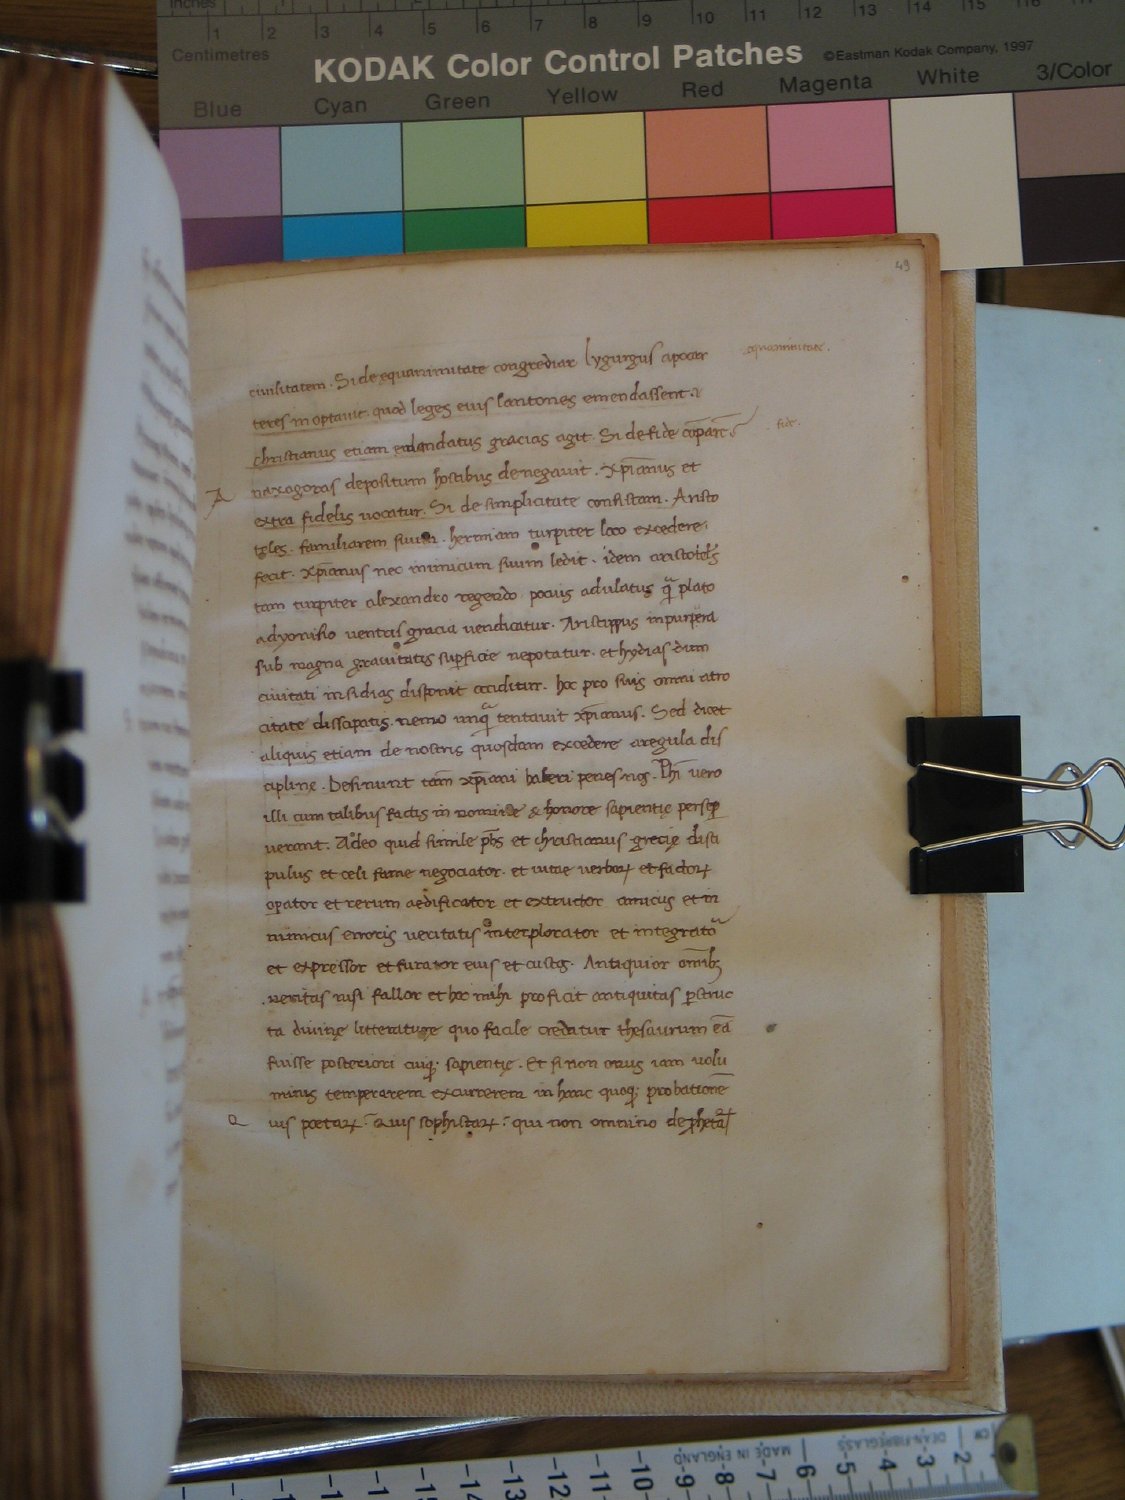 Inches
1 2 3 4 5 6 7 8 9 10 11 12 13 14 15 16 17
Centimetres
KODAK Color Control Patches ©Eastman Kodak Company, 1997
Blue Cyan Green Yellow Red Magenta White 3/Color
49
ciuilitatem. Si de equanimitate congrediar lygurgus apocar
equanimitate.
teres in optauit. quod leges eius lacones emendassent.
christianus etiam gracias agit. Si de fide cōparē.
fide.
A naxagoras depositum hostibus denegauit. xpīanus et
extra fidelis uocatur. Si de simplicitate consistam. Aristo
teles. familiarem suum. hermiam turpiter loco excedere.
fecit. xpīanus nec inimicum suum ledit. idem aristotels
tam turpiter alexandro regendo. pocius adulatus q̄ plato
adyonisio uentris gracia uendicatur. Aristippus inpurpura
sub magna grauitatis supficie nepotatur. et hydias dum
ciuitati insidias disponit occiditur. hoc pro suis omni atro
citate dissipatis. nemo unq̄ tentauit xpīanus. Sed dicet
aliquis etiam de nostris quosdam excedere aregula dis
cipline. Desinunt tam xpīani haberi penes nos. Phī uero
illi cum talibus factis in nomine & honore sapientie perseq
uerant. Adeo quid simile phs et christianus grecie disci
pulus et celi fame negociator. et uitae uerboꝝ et factoꝝ
opator et rerum aedificator et extructor amicus et in
nimicus erroris ueritatis interplorator et integrator
et expressor et furator eius et custos. Antiquior omībꝫ
ueritas nisi fallor et hoc mihi proficit antiquitas pstruc
ta diuine litterature quo facile credatur thesaurum eā
fuisse posteriori cuiqꝫ sapientie. Et si non onus iam uolu
minis temperarem excurrerem in hanc quoqꝫ probationē
Q uis poetaꝝ: Quis sophistaꝝ: qui non omnino de phetaꝝ
MADE IN ENGLAND DEAN-FIBREGLASS CM
-15 -14 -13 -12 -11 -10 -9 -8 -7 6 5 4 3 2